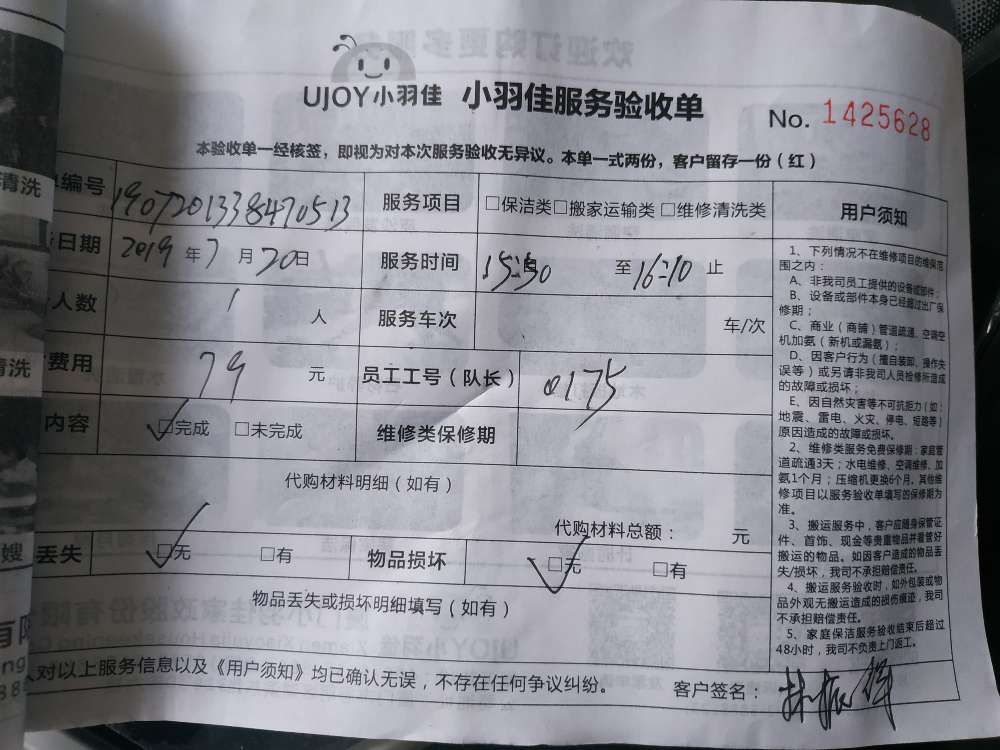 UJOY小羽佳 小羽佳服务验收单 No. 1425628
本验收单一经核签，即视为对本次服务验收无异议。本单一式两份，客户留存一份（红）
编号 1907201338470513 服务项目 □保洁类□搬家运输类□维修清洗类
日期 2019年7月20日 服务时间 15:30 至 16:10 止
人数 1 人 服务车次 车/次
费用 79 元 员工工号（队长） 0175
内容 □完成 □未完成 维修类保修期
代购材料明细（如有）
代购材料总额： 元
丢失 □无 □有 物品损坏 □无 □有
物品丢失或损坏明细填写（如有）
人对以上服务信息以及《用户须知》均已确认无误，不存在任何争议纠纷。
客户签名：
用户须知
1、下列情况不在维修项目的维保范
围之内：
A、非我司员工提供的设备或部件；
B、设备或部件本身已经超过出厂保
修期；
C、商业（商铺）管道疏通、空调空
机加氨（新机或漏氨）；
D、因客户行为（擅自装卸、操作失
误等）或另请非我司人员检修所造成
的故障或损坏；
E、因自然灾害等不可抗拒力（如：
地震、雷电、火灾、停电、短路等）
原因造成的故障或损坏。
2、维修类服务免费保修期：家庭管
道疏通3天；水电维修、空调维修、加
氨1个月；压缩机更换6个月。其他维
修项目以服务验收单填写的保修期为
准。
3、搬运服务中，客户应随身保管证
件、首饰、现金等贵重物品并看管好
搬运的物品。如因客户造成的物品丢
失/损坏，我司不承担赔偿责任。
4、搬运服务验收时，如外包装或物
品外观无搬运造成的损伤痕迹，我司
不承担赔偿责任。
5、家庭保洁服务验收结束后超过
48小时，我司不负责上门返工。
清洗
清洗
嫂